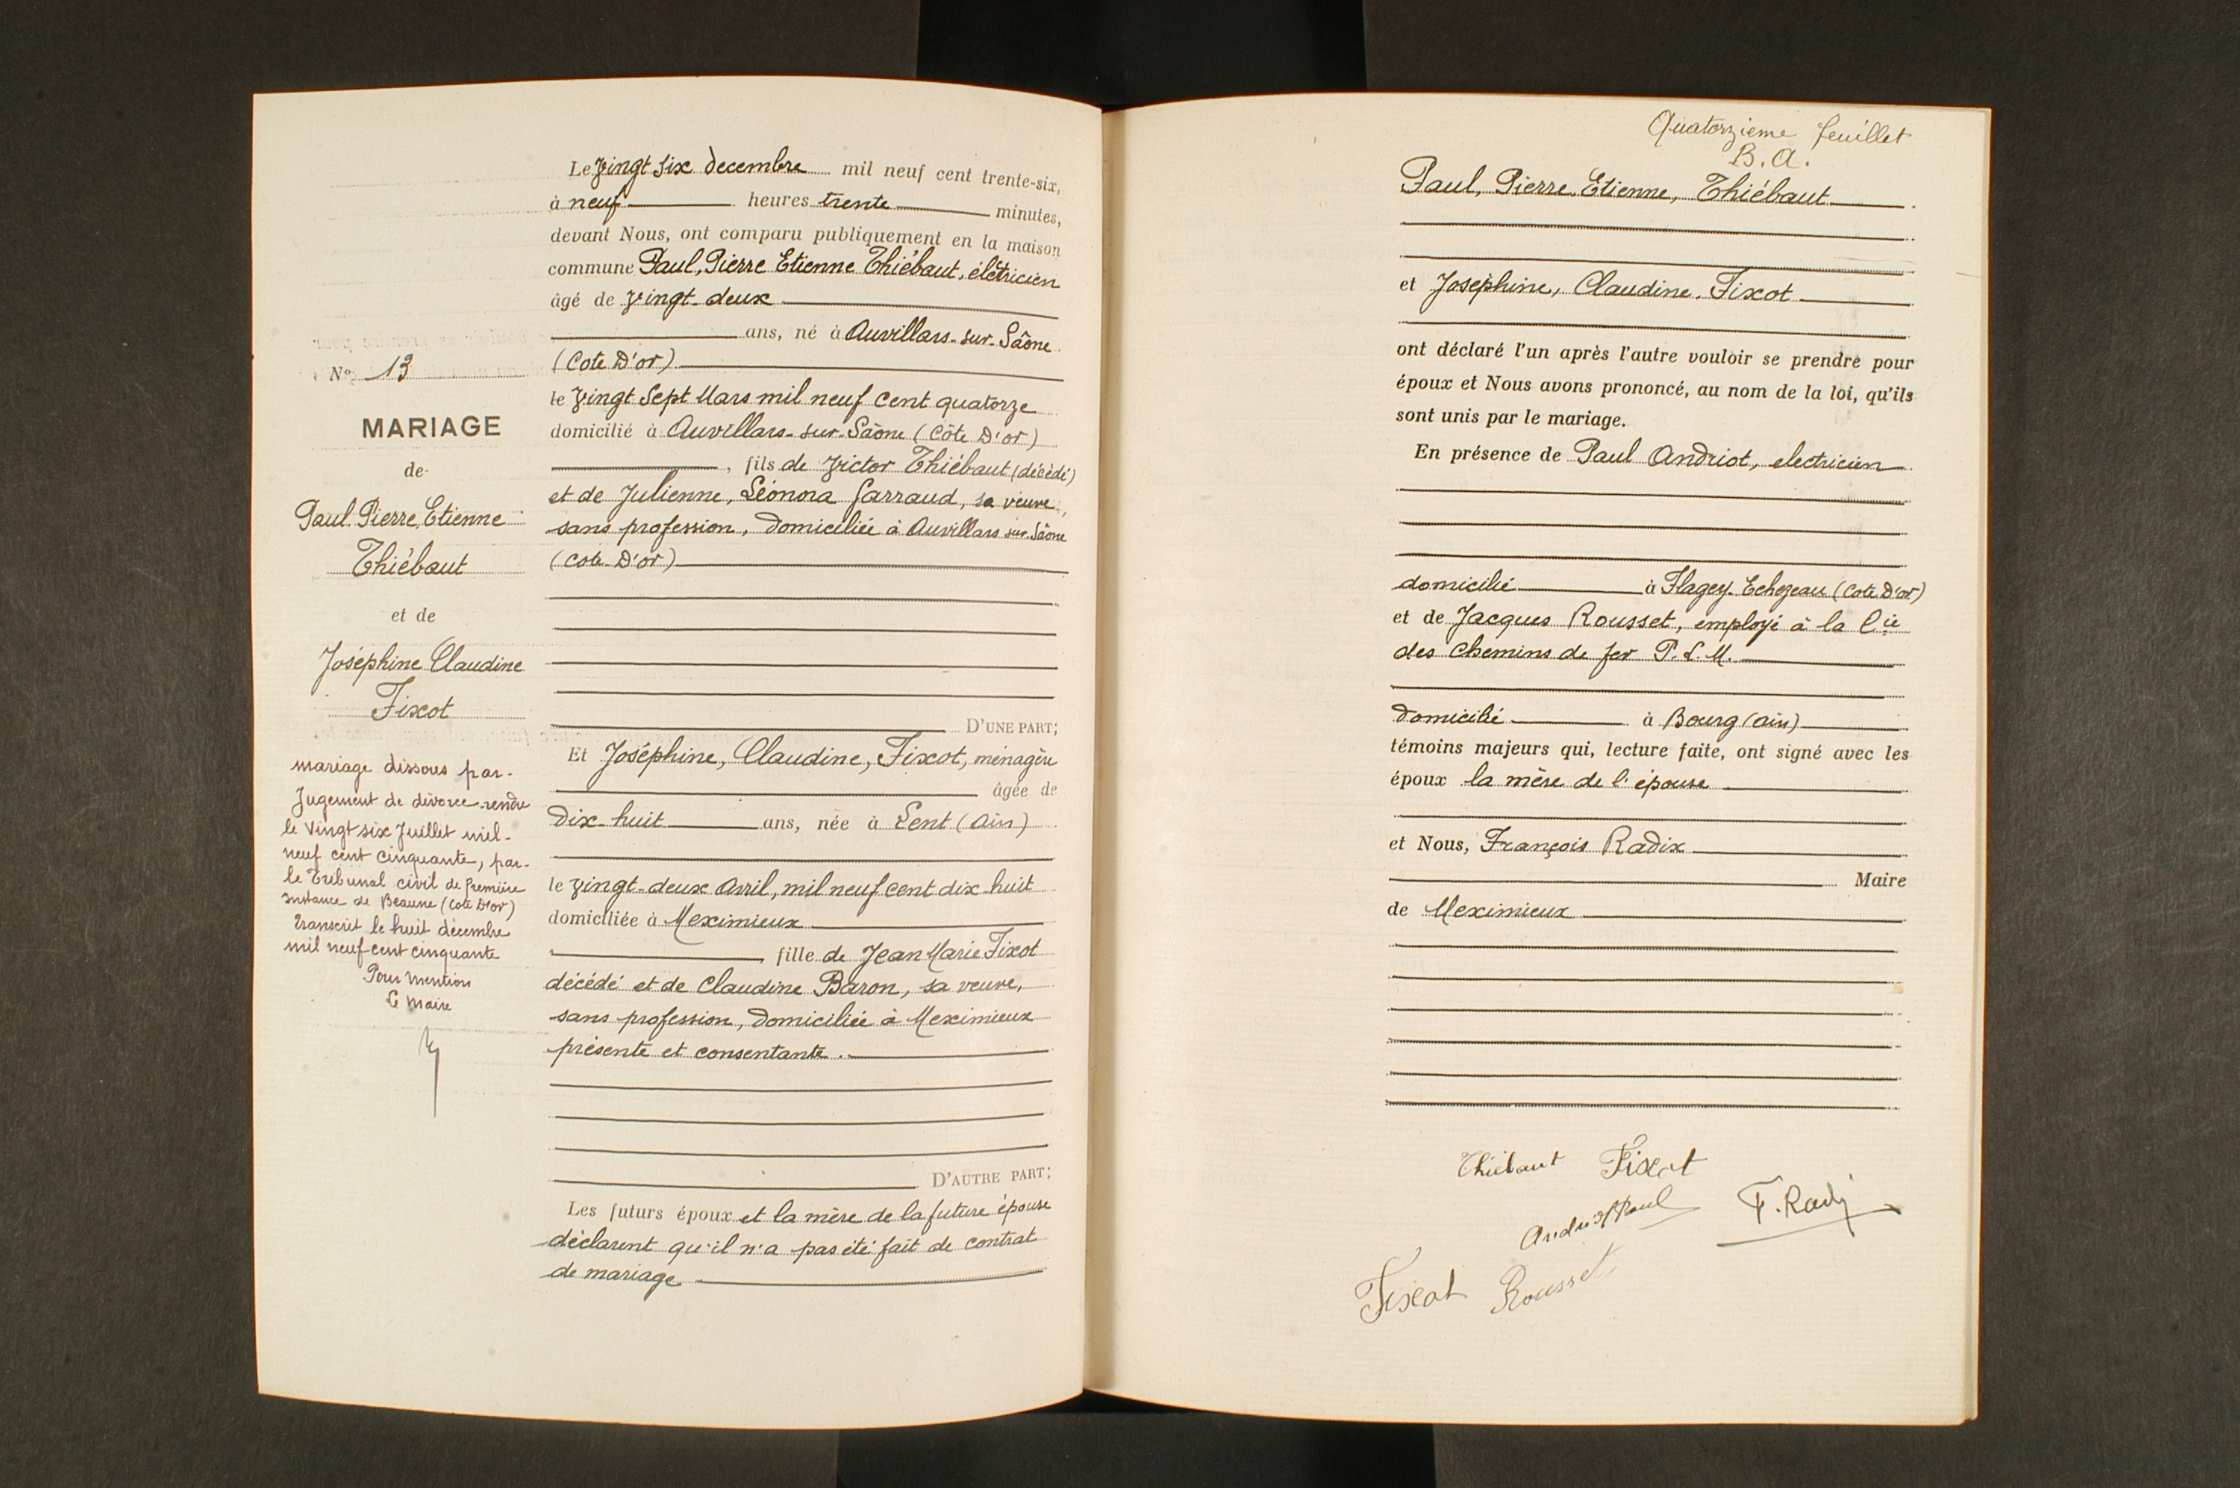 Le vingt six decembre mil neuf cent trente-six,
à neuf heures trente minutes,
devant Nous, ont comparu publiquement en la maison
commune Paul, Pierre Etienne Thiébaut, électricien
âgé de vingt-deux
ans, né à Auvillars-sur-Saône
(Cote D'or)
le vingt sept Mars mil neuf cent quatorze
domicilié à Auvillars-sur-Saône (Côte D'or)
, fils de Victor Thiébaut (décédé)
et de Julienne, Léonora Garraud, sa veuve,
sans profession, domiciliée à Auvillars sur Saône
(Cote-D'or)
D'UNE PART;
Et Joséphine, Claudine, Fixot, ménagère
âgée de
dix-huit ans, née à Lent (Ain)
le vingt-deux Avril, mil neuf cent dix huit
domiciliée à Meximieux
, fille de Jean Marie Fixot
décédé et de Claudine Baron, sa veuve,
sans profession, domiciliée à Meximieux
présente et consentante.
D'AUTRE PART;
Les futurs époux et la mère de la future épouse
déclarent qu'il n'a pas été fait de contrat
de mariage
No 13
MARIAGE
de
Paul Pierre, Etienne
Thiébaut
et de
Joséphine Claudine
Fixot
mariage dissous par
Jugement de divorce rendu
le vingt six Juillet mil
neuf cent cinquante, par
le Tribunal civil de première
instance de Beaune (Cote D'or)
transcrit le huit décembre
mil neuf cent cinquante
Pour mention
Le Maire
Quatorzieme feuillet
B.A.
Paul, Pierre Etienne, Thiébaut
et Joséphine, Claudine, Fixot
ont déclaré l'un après l'autre vouloir se prendre pour
époux et Nous avons prononcé, au nom de la loi, qu'ils
sont unis par le mariage.
En présence de Paul Andriot, electricien
domicilié à Flagey-Echezeau (Cote D'or)
et de Jacques Rousset, employé à la Cie
des Chemins de fer P.L.M.
domicilié à Bourg (Ain)
témoins majeurs qui, lecture faite, ont signé avec les
époux la mère de l'épouse
et Nous, François Radix
Maire
de Meximieux
Thiebaut Fixot
Andriot Paul F. Radix
Fixot Rousset